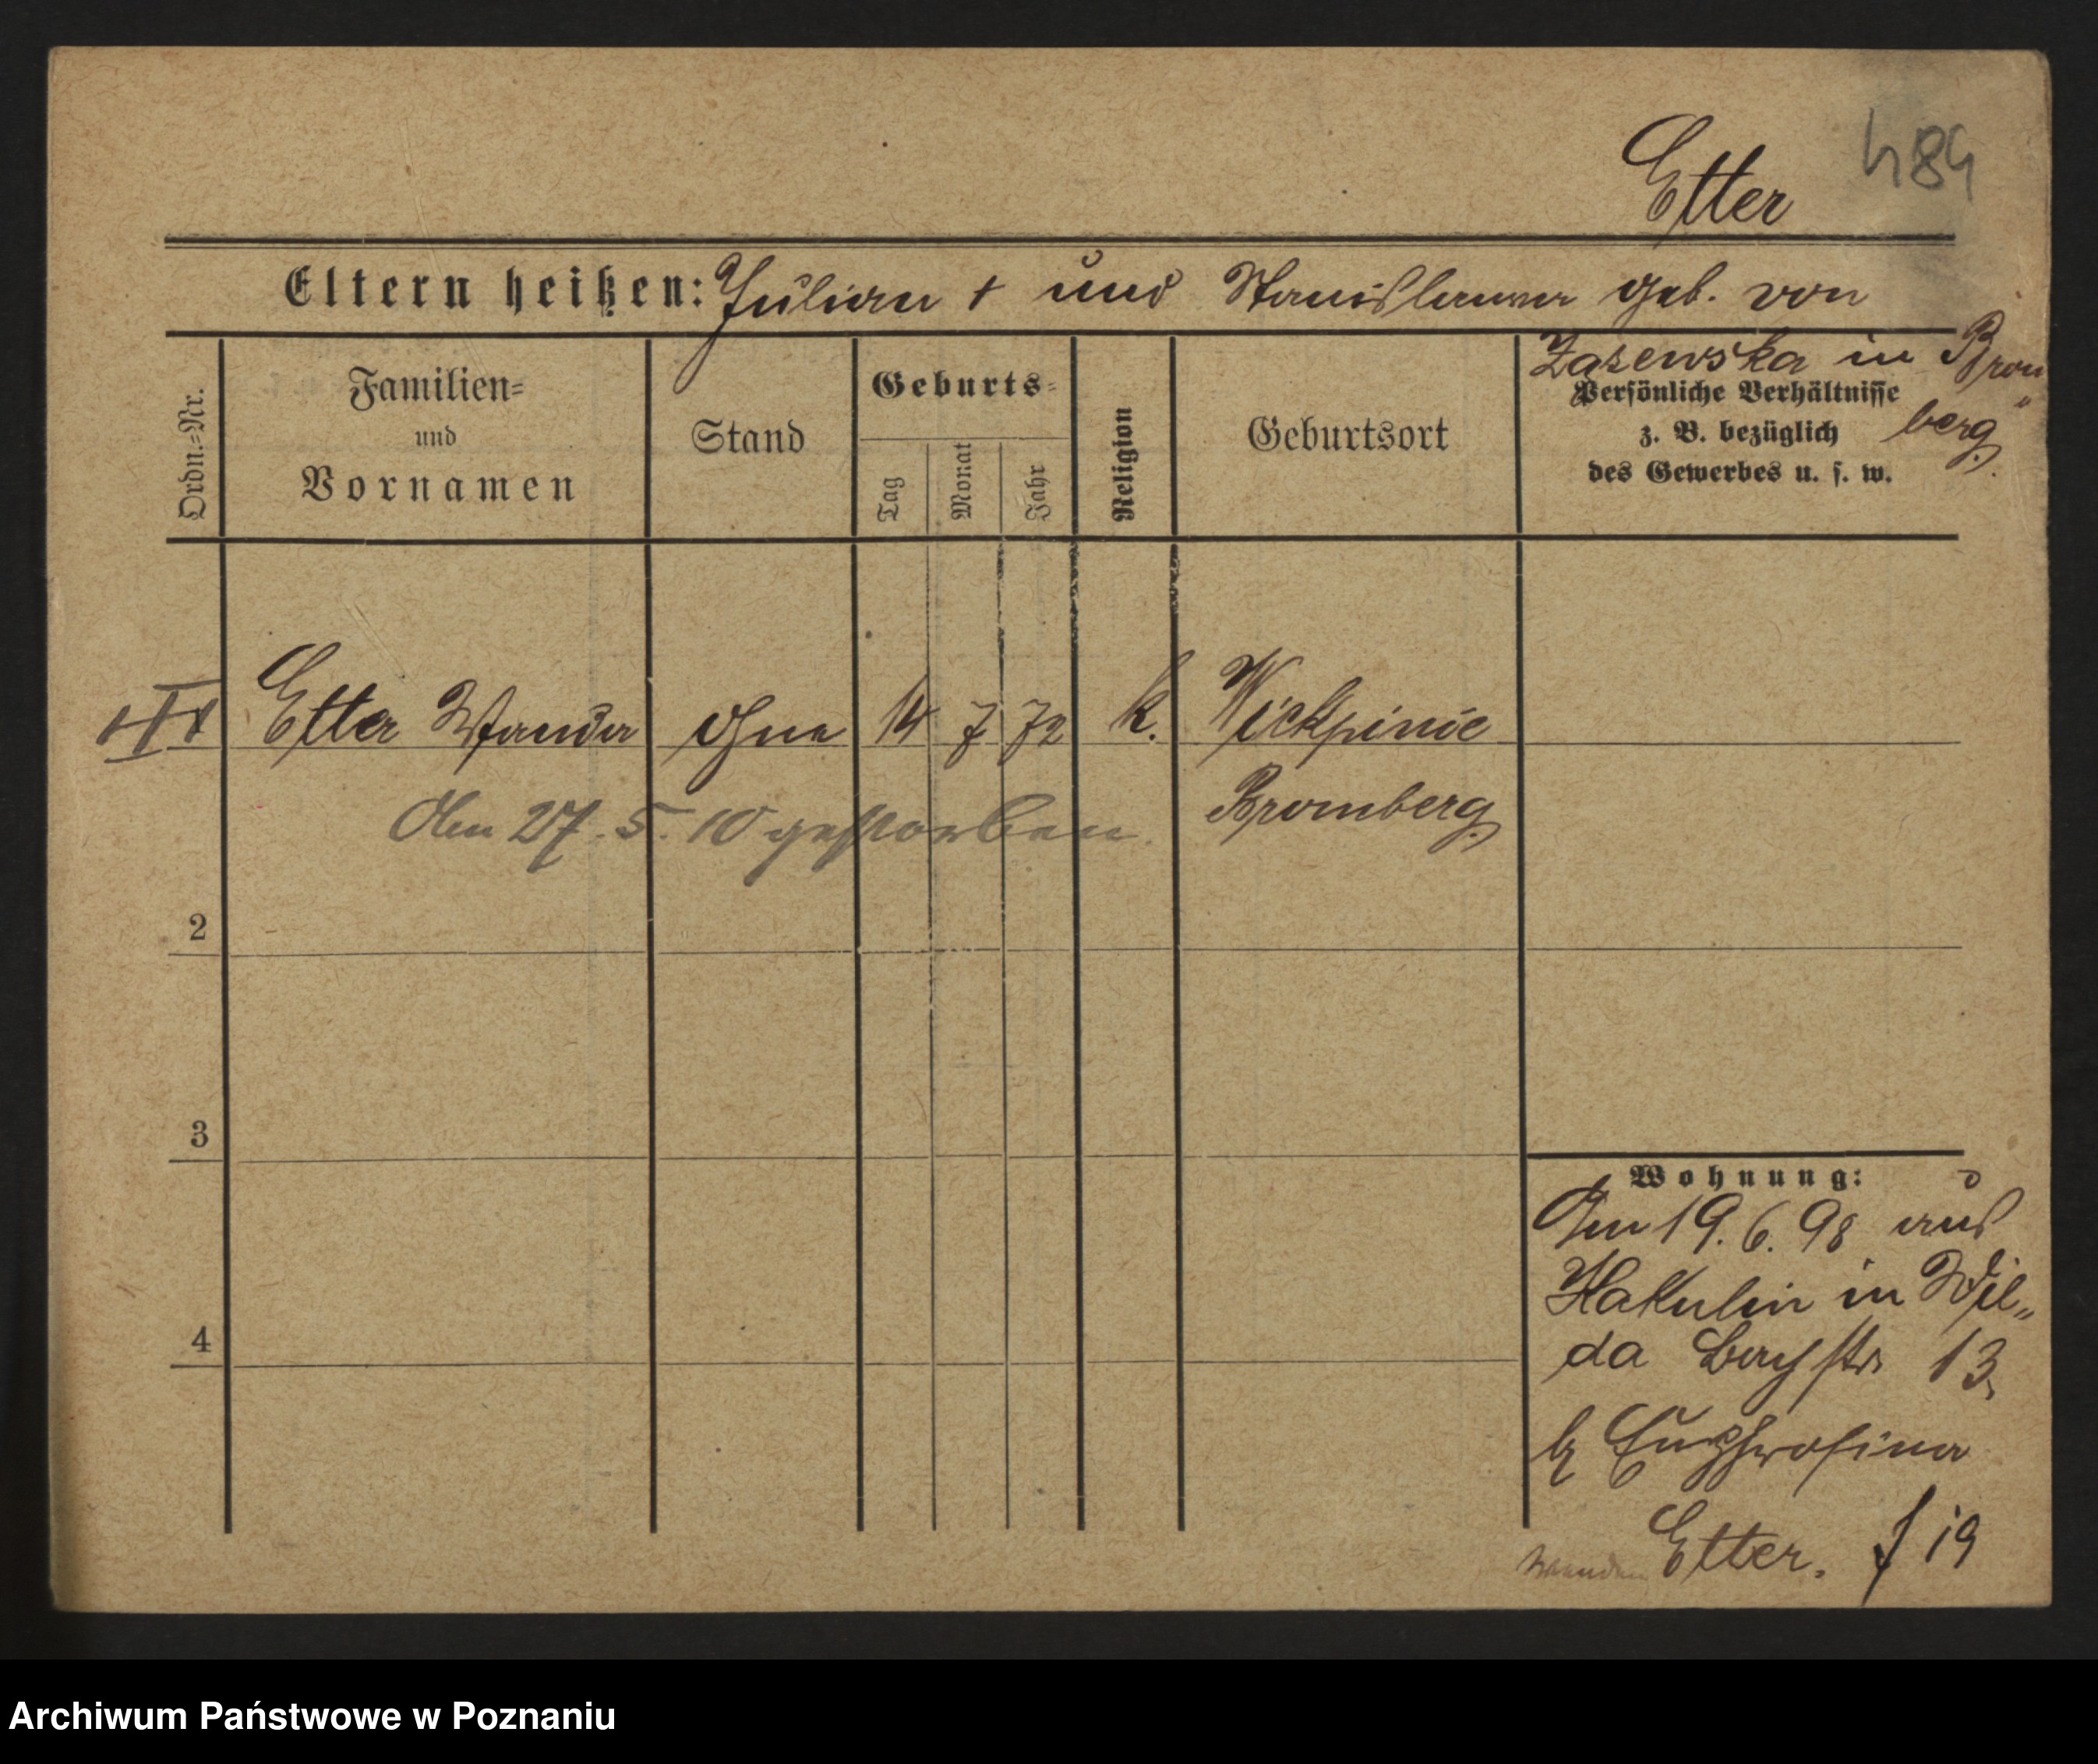 Etter
484
Eltern heißen: Julian † und Stanislawa geb. von
Zasewska in Brom
berg.
Ordn.=Nr.
Familien=
und
Vornamen
Stand
Geburts=
Tag
Monat
Jahr
Religion
Geburtsort
Persönliche Verhältnisse
z. B. bezüglich
des Gewerbes u. s. w.
Etter Wanda ohne 14 7 72 k. Wickpinie
Bromberg
Am 27. 5. 10 gestorben.
2
3
4
Wohnung:
Am 19. 6. 98 aus
Hakulin in Wil„
da Bachstr 13
b Euphrosina
Etter. f 19
wenden
Archiwum Państwowe w Poznaniu